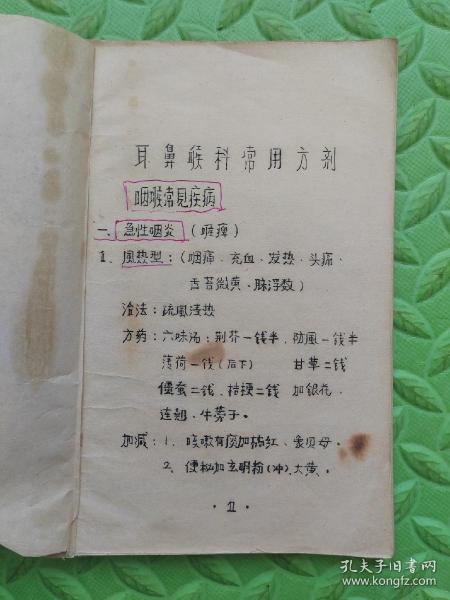 耳鼻喉科常用方剂
咽喉常見疾病
一、急性咽炎（喉痺）
1. 風热型：（咽痛、充血、发热、头痛、
舌苔微黄、脉浮数）
治法：疏風清热
方药：六味汤：荆芥一钱半、防風一钱半
薄荷一钱（后下） 甘草二钱
僵蚕二钱、桔梗二钱 加银花、
连翘、牛蒡子。
加减：1、咳嗽有痰加桔红、象贝母。
2、便秘加玄明粉（冲）、大黄。
·1·
孔夫子旧书网
www.kongfz.com